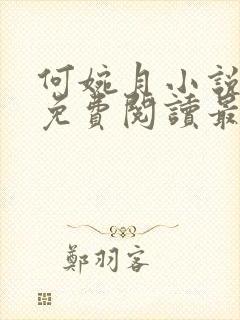 何婉月小說
免費閱讀最
鄭羽客